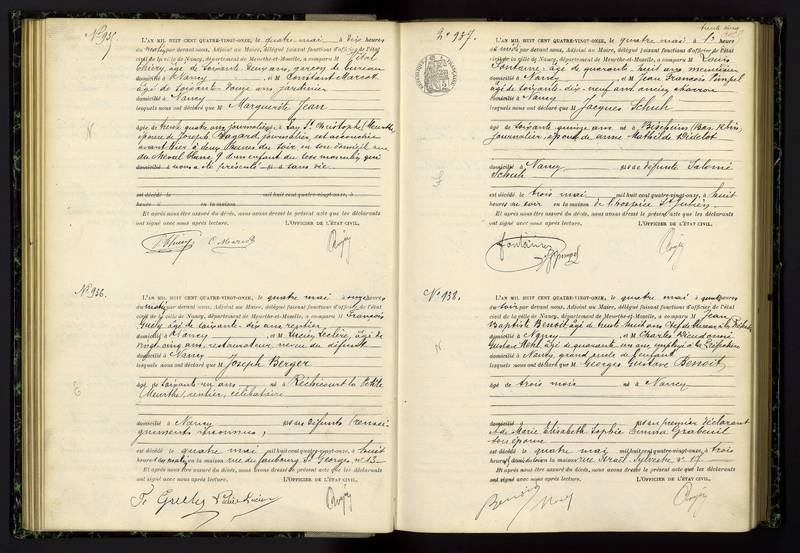 N° 935.
L'AN MIL HUIT CENT QUATRE-VINGT-ONZE, le quatre mai à dix heures
du matin par devant nous, Adjoint au Maire, délégué faisant fonctions d'officier de l'état
civil de la ville de Nancy, département de Meurthe-et-Moselle, a comparu M Vital
Thiry, âgé de soixante ans, garçon de bureau
domicilié à Nancy et M Constant Marcot
âgé de soixante-douze ans, jardinier
domicilié à Nancy
lesquels nous ont déclaré que M Marguerite Jean
âgée de trente quatre ans journalière à Lay St Christophe (Meurthe)
épouse de Joseph Bagard journalier, est accouchée
avant hier à deux heures du soir en son domicile rue
9 d'un enfant du sexe masculin qui
nous a été présenté sans vie
est décédé le mil huit cent quatre-vingt-onze, à
heure en la maison
Et après nous être assuré du décès, nous avons dressé le présent acte que les déclarants
ont signé avec nous après lecture. L'OFFICIER DE L'ÉTAT CIVIL,
Thiry C. Marcot
N° 936.
L'AN MIL HUIT CENT QUATRE-VINGT-ONZE, le quatre mai à onze heures
du matin par devant nous, Adjoint au Maire, délégué faisant fonctions d'officier de l'état
civil de la ville de Nancy, département de Meurthe-et-Moselle, a comparu M François
âgé de soixante-dix ans rentier
domicilié à Nancy et M Lucien Leclère, âgé de
vingt cinq ans, restaurateur, neveu du défunt
domicilié à Nancy
lesquels nous ont déclaré que M Joseph Berger
âgé de soixante un ans né à Réchicourt la Petite
(Meurthe), rentier, célibataire
domicilié à Nancy fils de défunts (rensei-
gnements inconnus)
est décédé le quatre mai mil huit cent quatre-vingt-onze, à huit
heures du matin en la maison rue du faubourg St Georges, n° 13
Et après nous être assuré du décès, nous avons dressé le présent acte que les déclarants
ont signé avec nous après lecture. L'OFFICIER DE L'ÉTAT CIVIL,
N° 937.
L'AN MIL HUIT CENT QUATRE-VINGT-ONZE, le quatre mai à 1e heure
du midi par devant nous, Adjoint au Maire, délégué faisant fonctions d'officier de l'état
civil de la ville de Nancy, département de Meurthe-et-Moselle, a comparu M Louis
Fontaine âgé de quarante huit ans
domicilié à Nancy et M Jean François Pimpel
âgé de soixante-dix-neuf ans ancien charron
domicilié à Nancy
lesquels nous ont déclaré que M Jacques Schuh
âgé de soixante quinze ans né à Bischheim (Bas-Rhin)
journalier, époux de Anne Mathilde Didelot
domicilié à Nancy fils de défunte Salomé
Schuh
est décédé le trois mai mil huit cent quatre-vingt-onze, à huit
heures du soir en la maison de l'hospice St Julien
Et après nous être assuré du décès, nous avons dressé le présent acte que les déclarants
ont signé avec nous après lecture. L'OFFICIER DE L'ÉTAT CIVIL,
Fontaine
N° 938.
L'AN MIL HUIT CENT QUATRE-VINGT-ONZE, le quatre mai à quatre heures
du soir par devant nous, Adjoint au Maire, délégué faisant fonctions d'officier de l'état
civil de la ville de Nancy, département de Meurthe-et-Moselle, a comparu M Jean
Baptiste Benoît âgé de trente huit ans Chef de bureau à la Préfecture
domicilié à Nancy et M Charles Dieudonné
Gustave Noël âgé de quarante un ans employé à la Préfecture
domicilié à Nancy, grand oncle de l'enfant
lesquels nous ont déclaré que M Georges Gustave Benoît
âgé de trois mois né à Nancy
domicilié à fils du premier déclarant
et de Marie Elisabeth Sophie Emma
son épouse
est décédé le quatre mai mil huit cent quatre-vingt-onze, à trois
heures en la maison rue 17
Et après nous être assuré du décès, nous avons dressé le présent acte que les déclarants
ont signé avec nous après lecture. L'OFFICIER DE L'ÉTAT CIVIL,
Benoît Noël